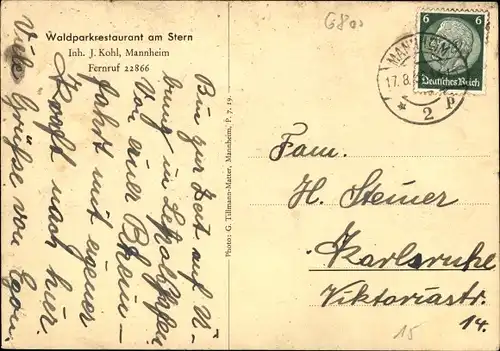 Waldparkrestaurant am Stern
Inh. J. Kohl, Mannheim
Fernruf 22866
Bin zur Zeit auf Ü-
bung in
Von einer Rhein-
fahrt mit eigener
Kraft nach hier
Viele Grüße von Egon.
Photo: G. Tillmann-Matter, Mannheim, P. 7, 19.
6 6
Deutsches Reich
MANNHEIM
17.8.
* 2 P
Fam.
H. Steiner
Karlsruhe
Viktoriastr.
14.
15